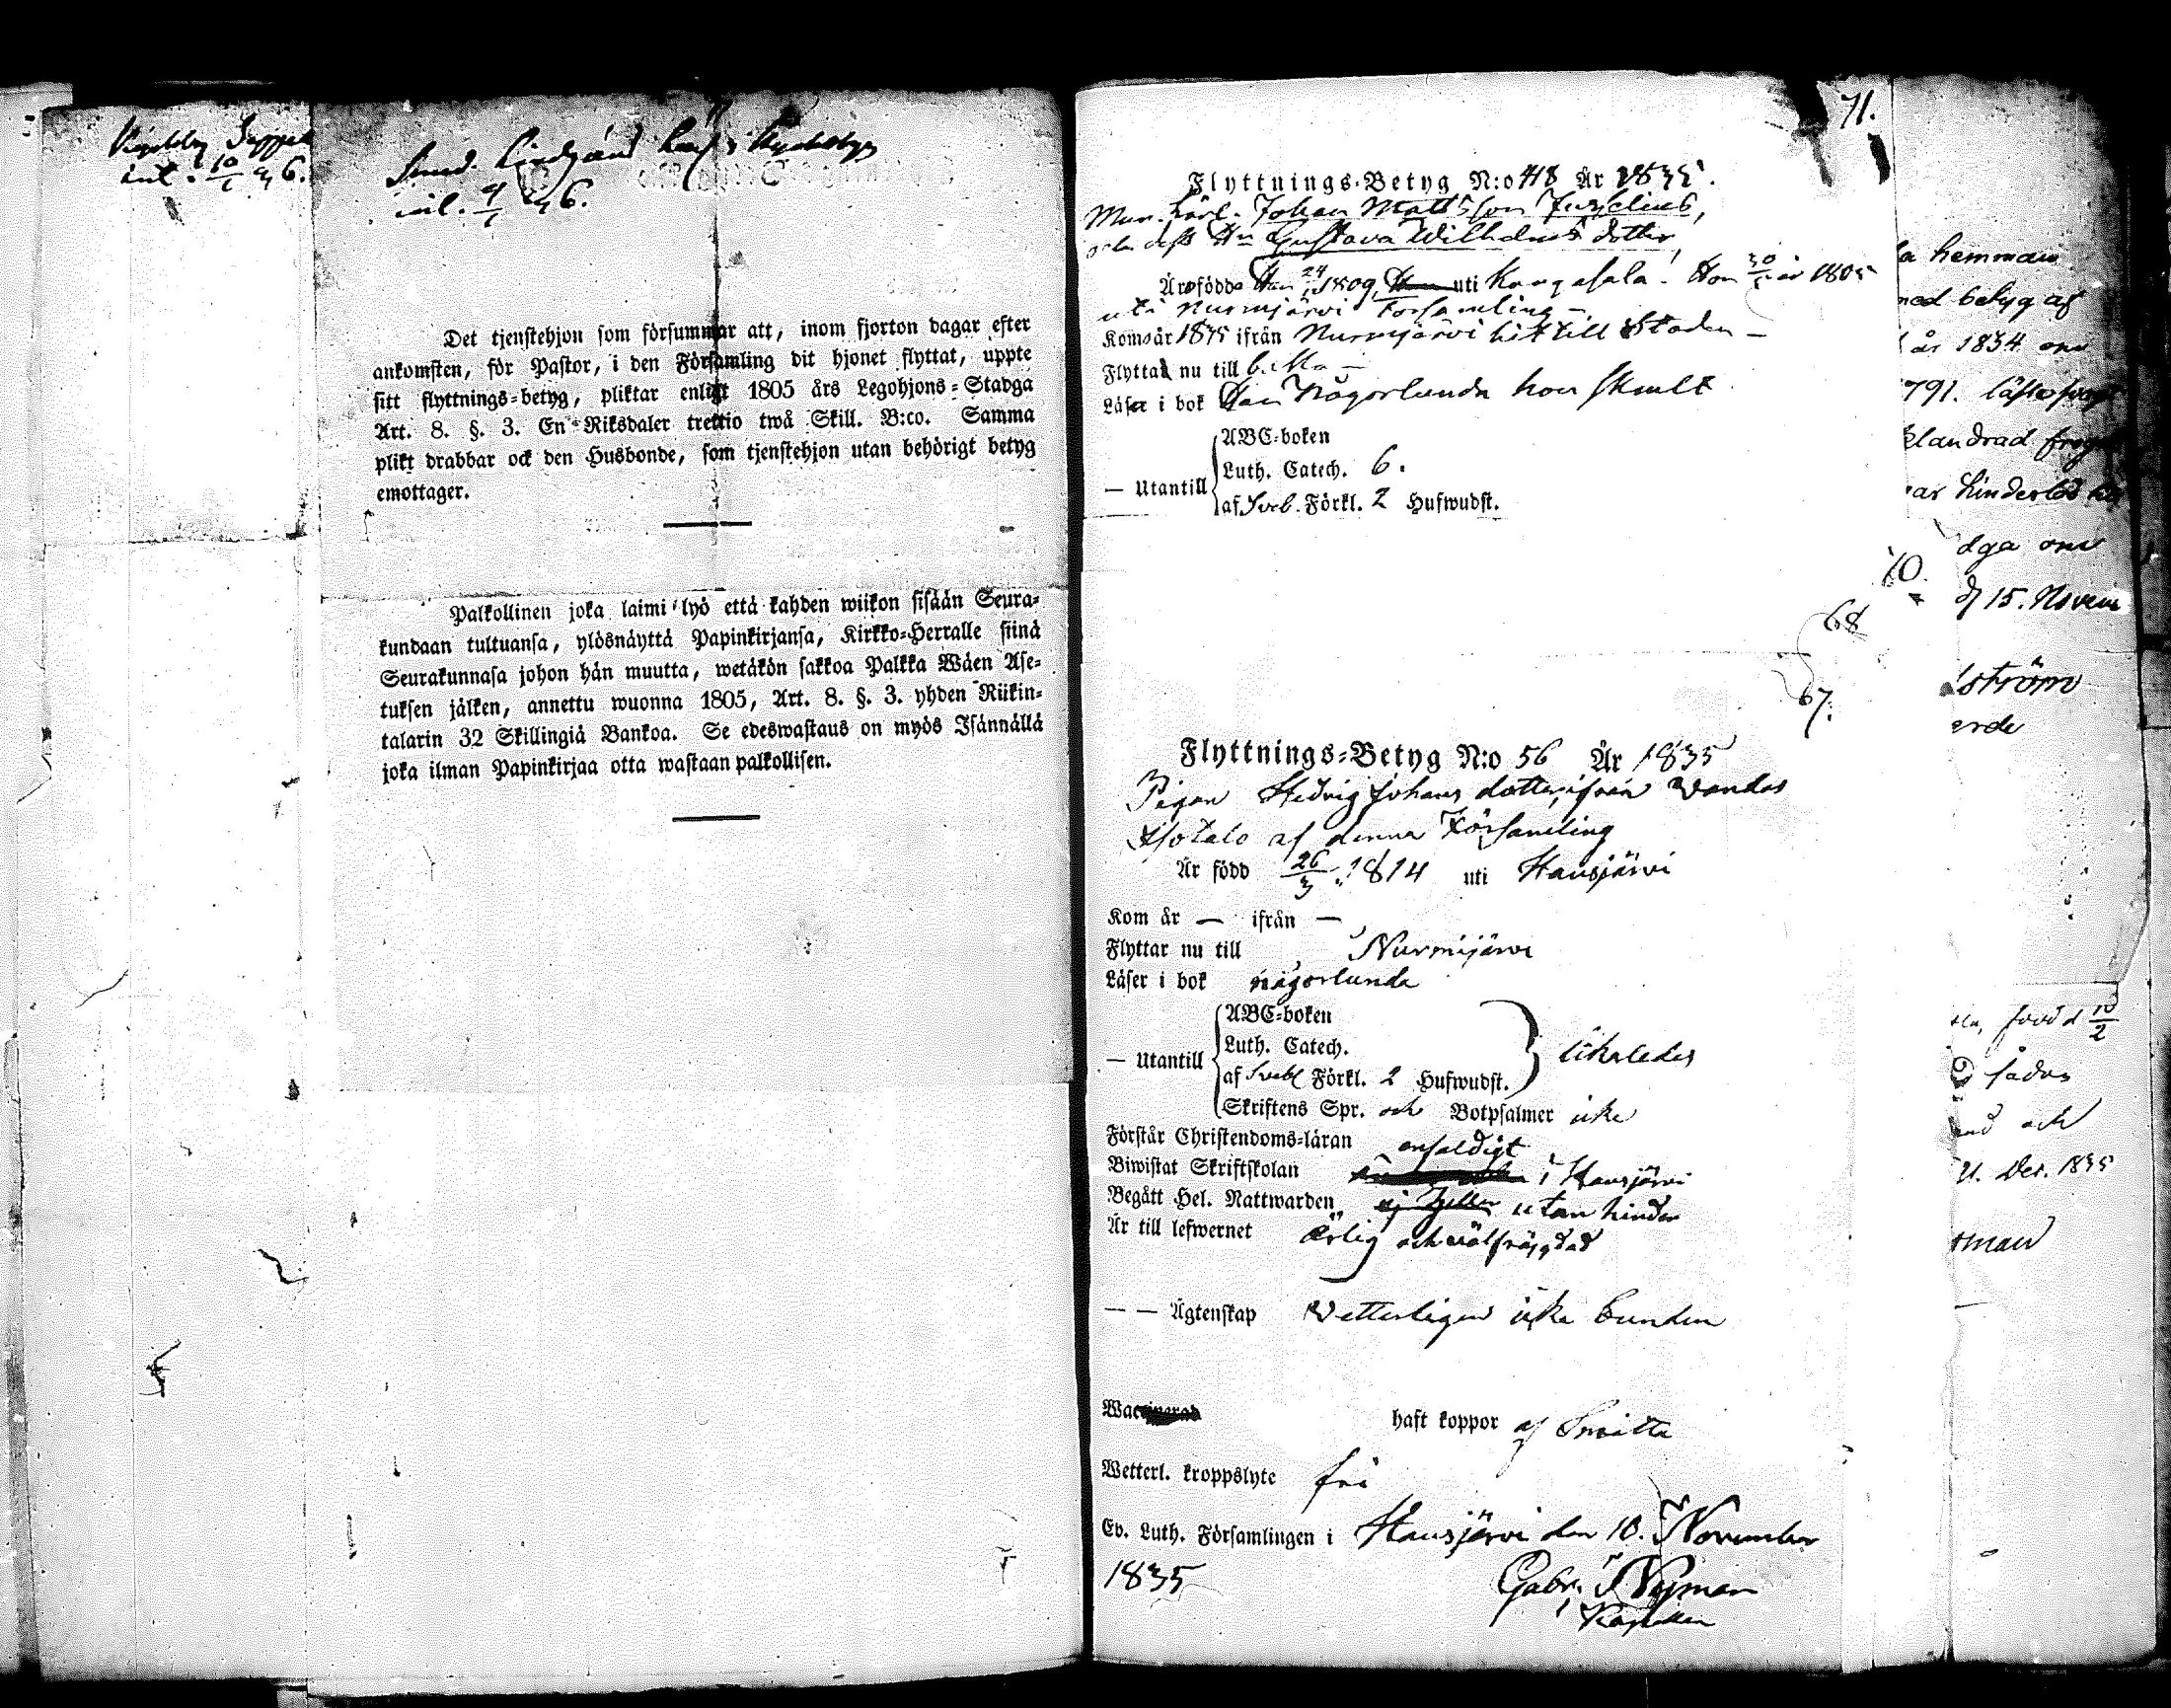 inl. 10/1 36.
inl. 9/1 36.
Det tjenstehjon som försummar att, inom fjorton dagar efter
ankomsten, för Pastor, i den Församling dit hjonet flyttat, uppte
sitt flyttnings-betyg, pliktar enligt 1805 års Legohjons-Stadga
Art. 8. §. 3. En Riksdaler trettio twå Skill. B:co. Samma
plikt drabbar ock den Husbonde, som tjenstehjon utan behörigt betyg
emottager.
Palkollinen joka laimi lyö että kahden wiikon sisään Seura-
kundaan tultuansa, ylösnäyttä Papinkirjansa, Kirkko-Herralle siinä
Seurakunnasa johon hän muutta, wetäkön sakkoa Palkka Wäen Ase-
tuksen jälken, annettu wuonna 1805, Art. 8. §. 3. yhden Riikin-
talarin 32 Skillingiä Bankoa. Se edeswastaus on myös Isännällä
joka ilman Papinkirjaa otta wastaan palkollisen.
71.
Flyttnings-Betyg N:o 48 År 1835.
Johan Mattsson
Gustava Wilhelms dotter,
Äro födde Han 24 1809, uti Kangasala. Hon 30 år 1805
uti Nurmijärvi Församling -
Kom år 1835 ifrån Nurmijärvi hit till Staden -
Flytta nu till
Läser i bok Han Någorlunda hon skralt
— Utantill
ABC-boken
Luth. Catech. 6.
af Sveb. Förkl. 2 Hufwudst.
68
67.
Flyttnings-Betyg N:o 56 År 1835
Pigan Hedvig Johans dotter, ifrån Vandas
Isotalo af denna Församling
Är född 26/3 1814 uti Hausjärvi
Kom år — ifrån —
Flyttar nu till Nurmijärvi
Läser i bok någorlunda
— Utantill
ABC-boken
Luth. Catech.
af Svebl Förkl. 2 Hufwudst.
likaledes
Skriftens Spr. och Botpsalmer icke
Förstår Christendoms-läran enfaldigt
Biwistat Skriftskolan i Hausjärvi
Begått Hel. Nattwarden ej heller utan hinder
Är till lefwernet ärlig och välfräjdad
— — Ägtenskap Vetterligen icke bunden
Waccinerad haft koppor af Smitta
Wetterl. kroppslyte fri
Ev. Luth. Församlingen i Hausjärvi den 10. November
1835
Gabr. Nyman
Kapellan
a hemman
med betyg af
år 1834
791.
hinderlös
70.
15. Novem
ström
född 10/2
och
Dec. 1835
man